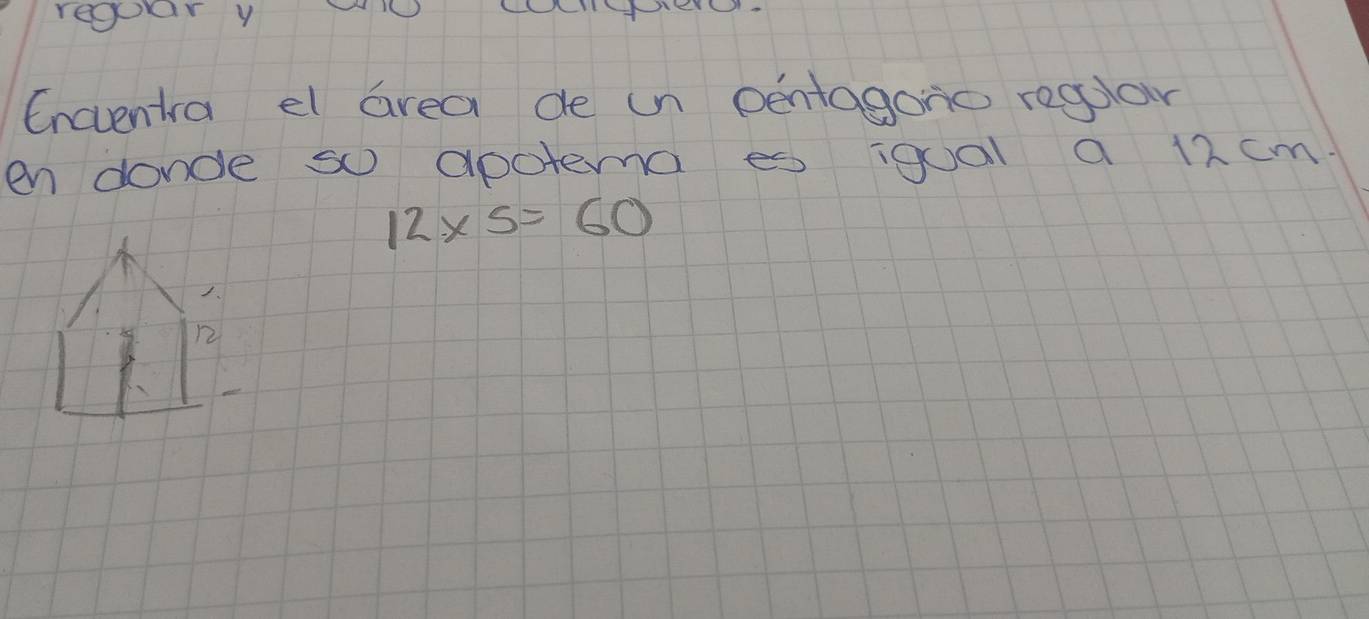 regular y uno cualquiera.
Encuentra el área de un péntagono regular
en donde su apotema es igual a 12 cm.
12 x 5 = 60
12